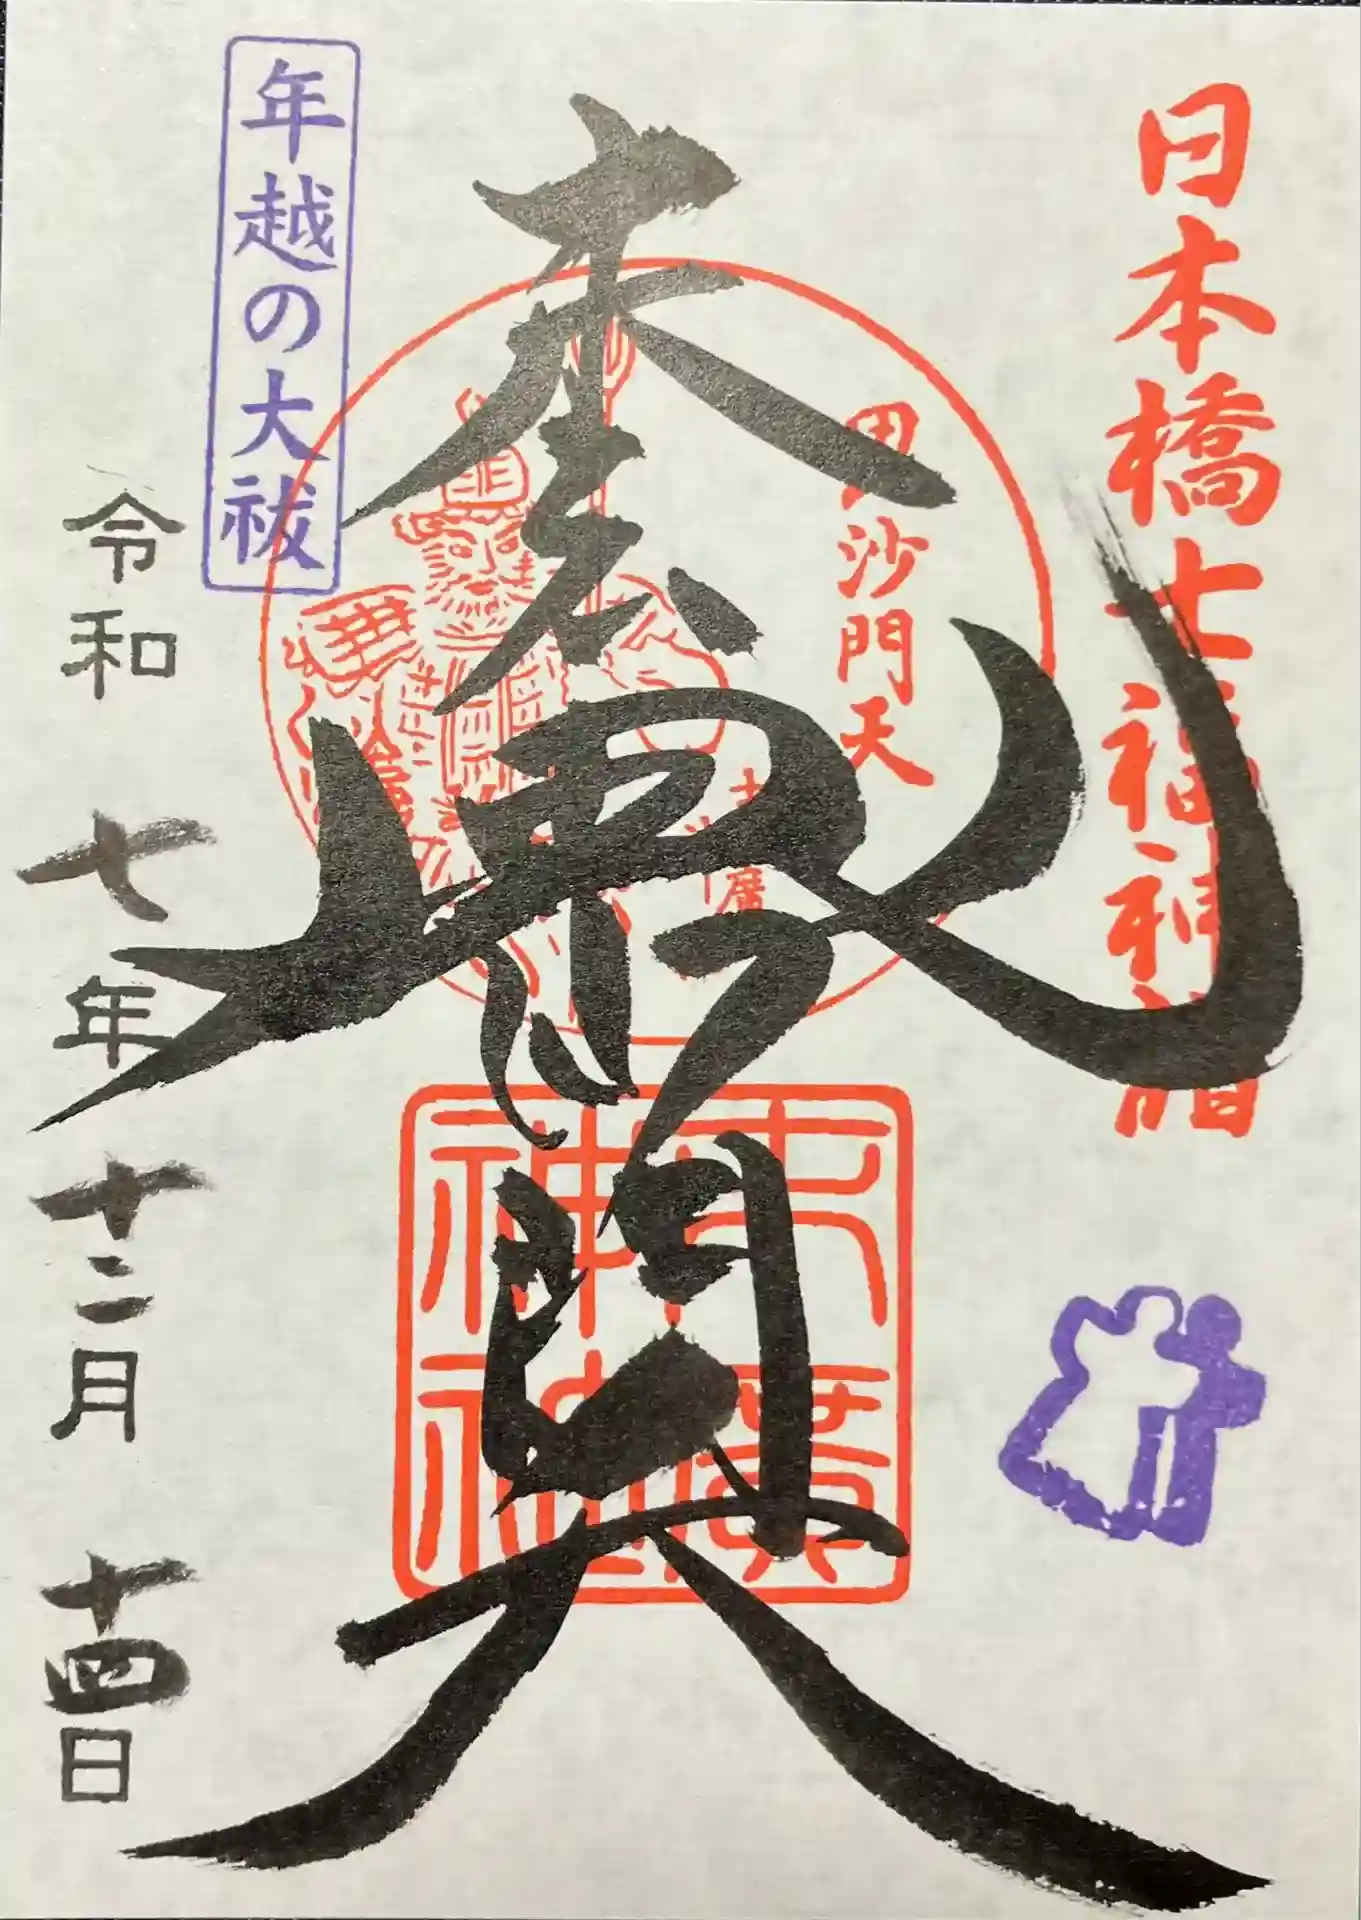 日本橋七福神詣
毘沙門天
毘沙門天
末廣神社
年越の大祓
令和七年十二月十四日